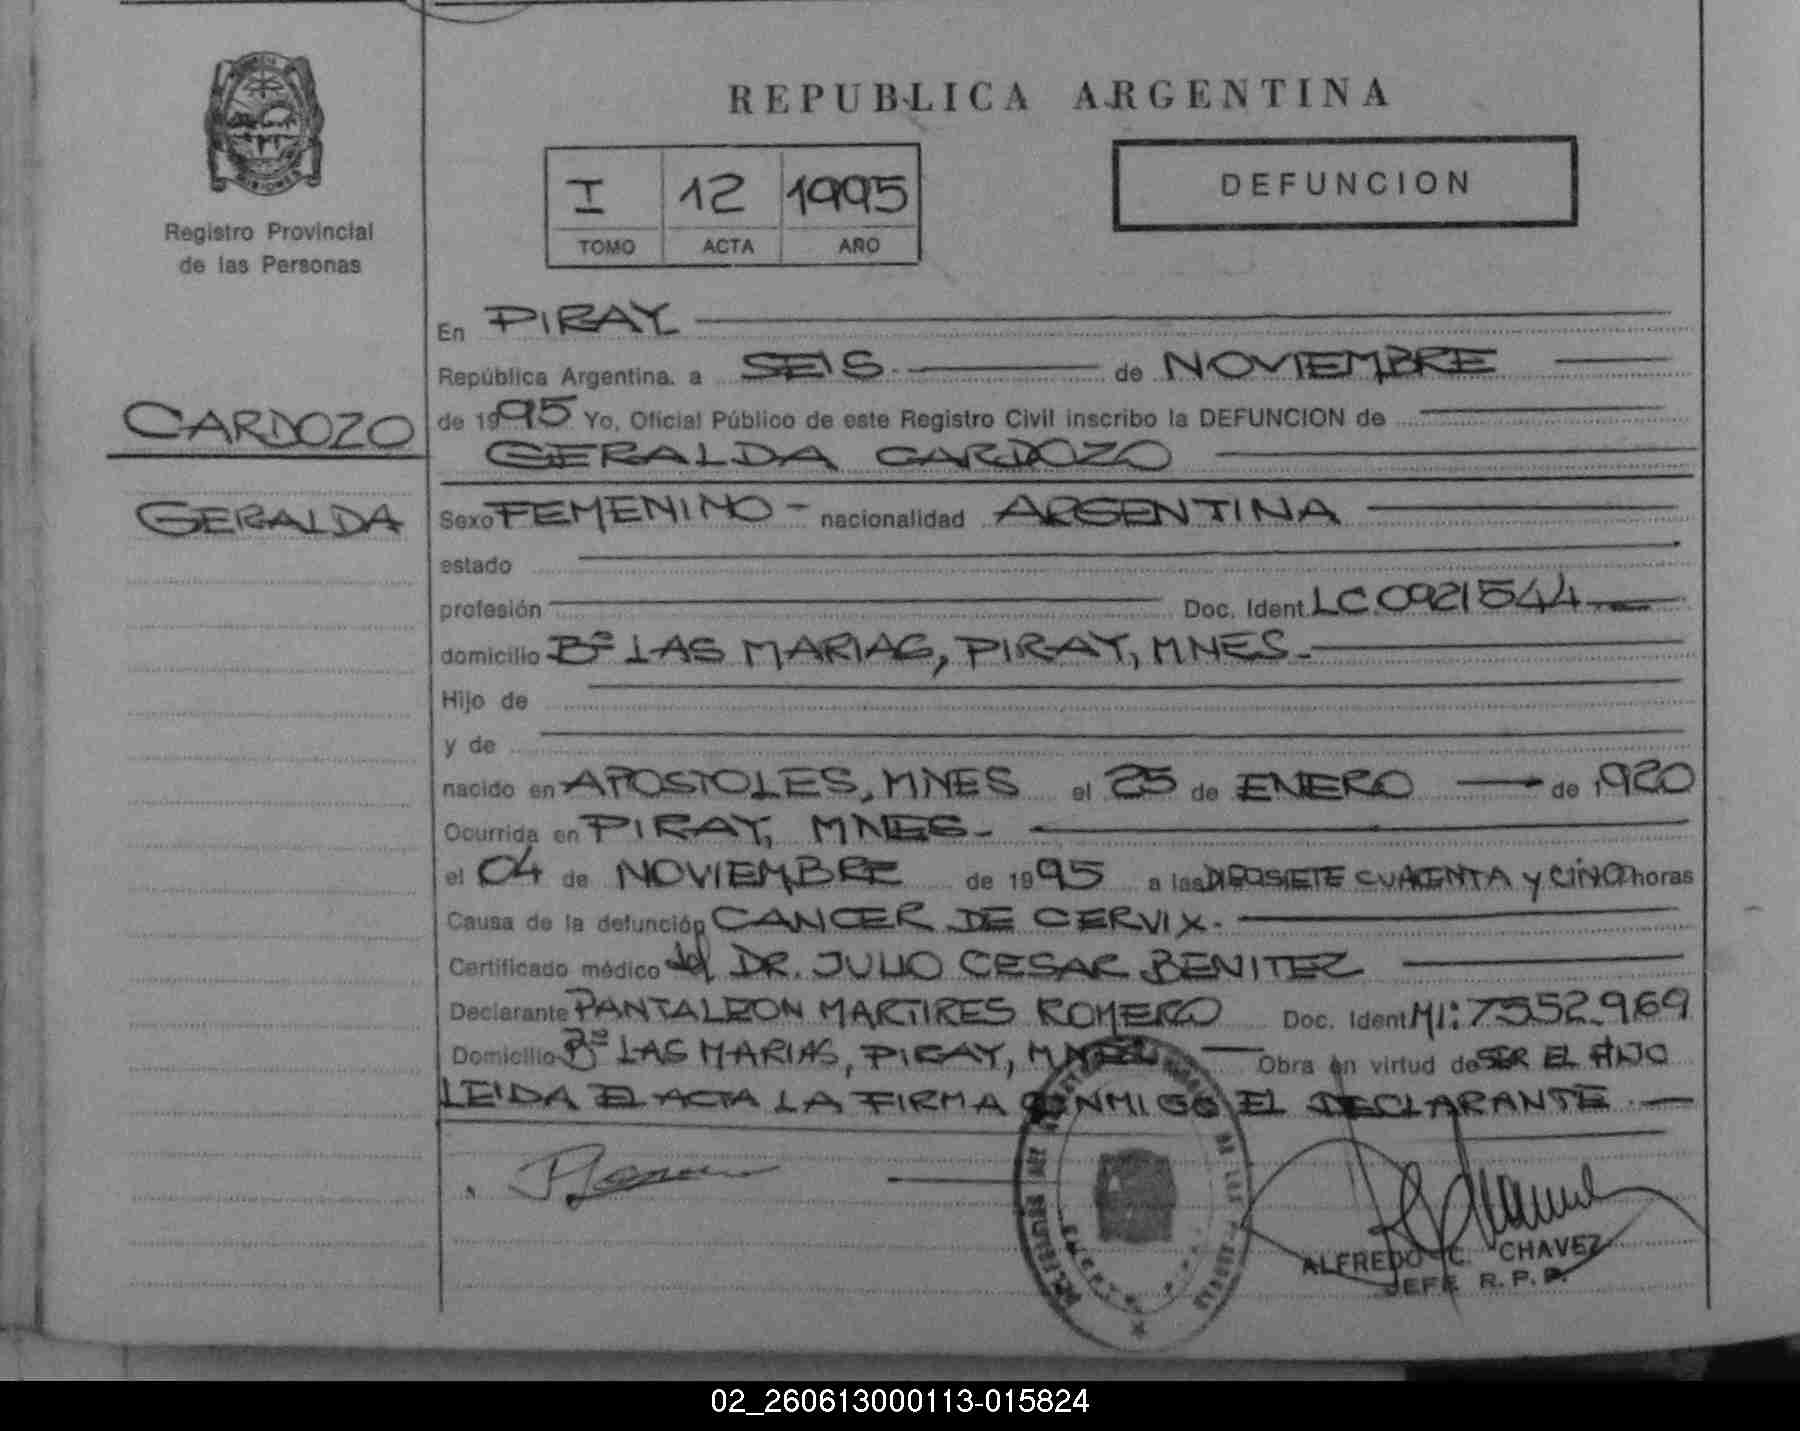 REPUBLICA ARGENTINA
I 12 1995
TOMO ACTA AÑO
DEFUNCION
Registro Provincial
de las Personas
CARDOZO
GERALDA
En PIRAY
República Argentina, a SEIS de NOVIEMBRE
de 1995 Yo, Oficial Público de este Registro Civil inscribo la DEFUNCION de
GERALDA CARDOZO
Sexo FEMENINO - nacionalidad ARGENTINA
estado
profesión Doc. Ident. LC.0921544
domicilio Bº LAS MARIAS, PIRAY, MNES.
Hijo de
y de
nacido en APOSTOLES, MNES el 25 de ENERO de 1920
Ocurrida en PIRAY, MNES.
el 04 de NOVIEMBRE de 1995 a las DIECISIETE CUARENTA y CINCO horas
Causa de la defunción CANCER DE CERVIX.
Certificado médico del DR. JULIO CESAR BENITEZ
Declarante PANTALEON MARTIRES ROMERO Doc. Ident MI: 7552.969
Domicilio Bº LAS MARIAS, PIRAY, MNES Obra en virtud de SER EL HIJO
LEIDA EL ACTA LA FIRMA CONMIGO EL DECLARANTE.
ALFREDO C. CHAVEZ
JEFE R. P. P.
02_260613000113-015824